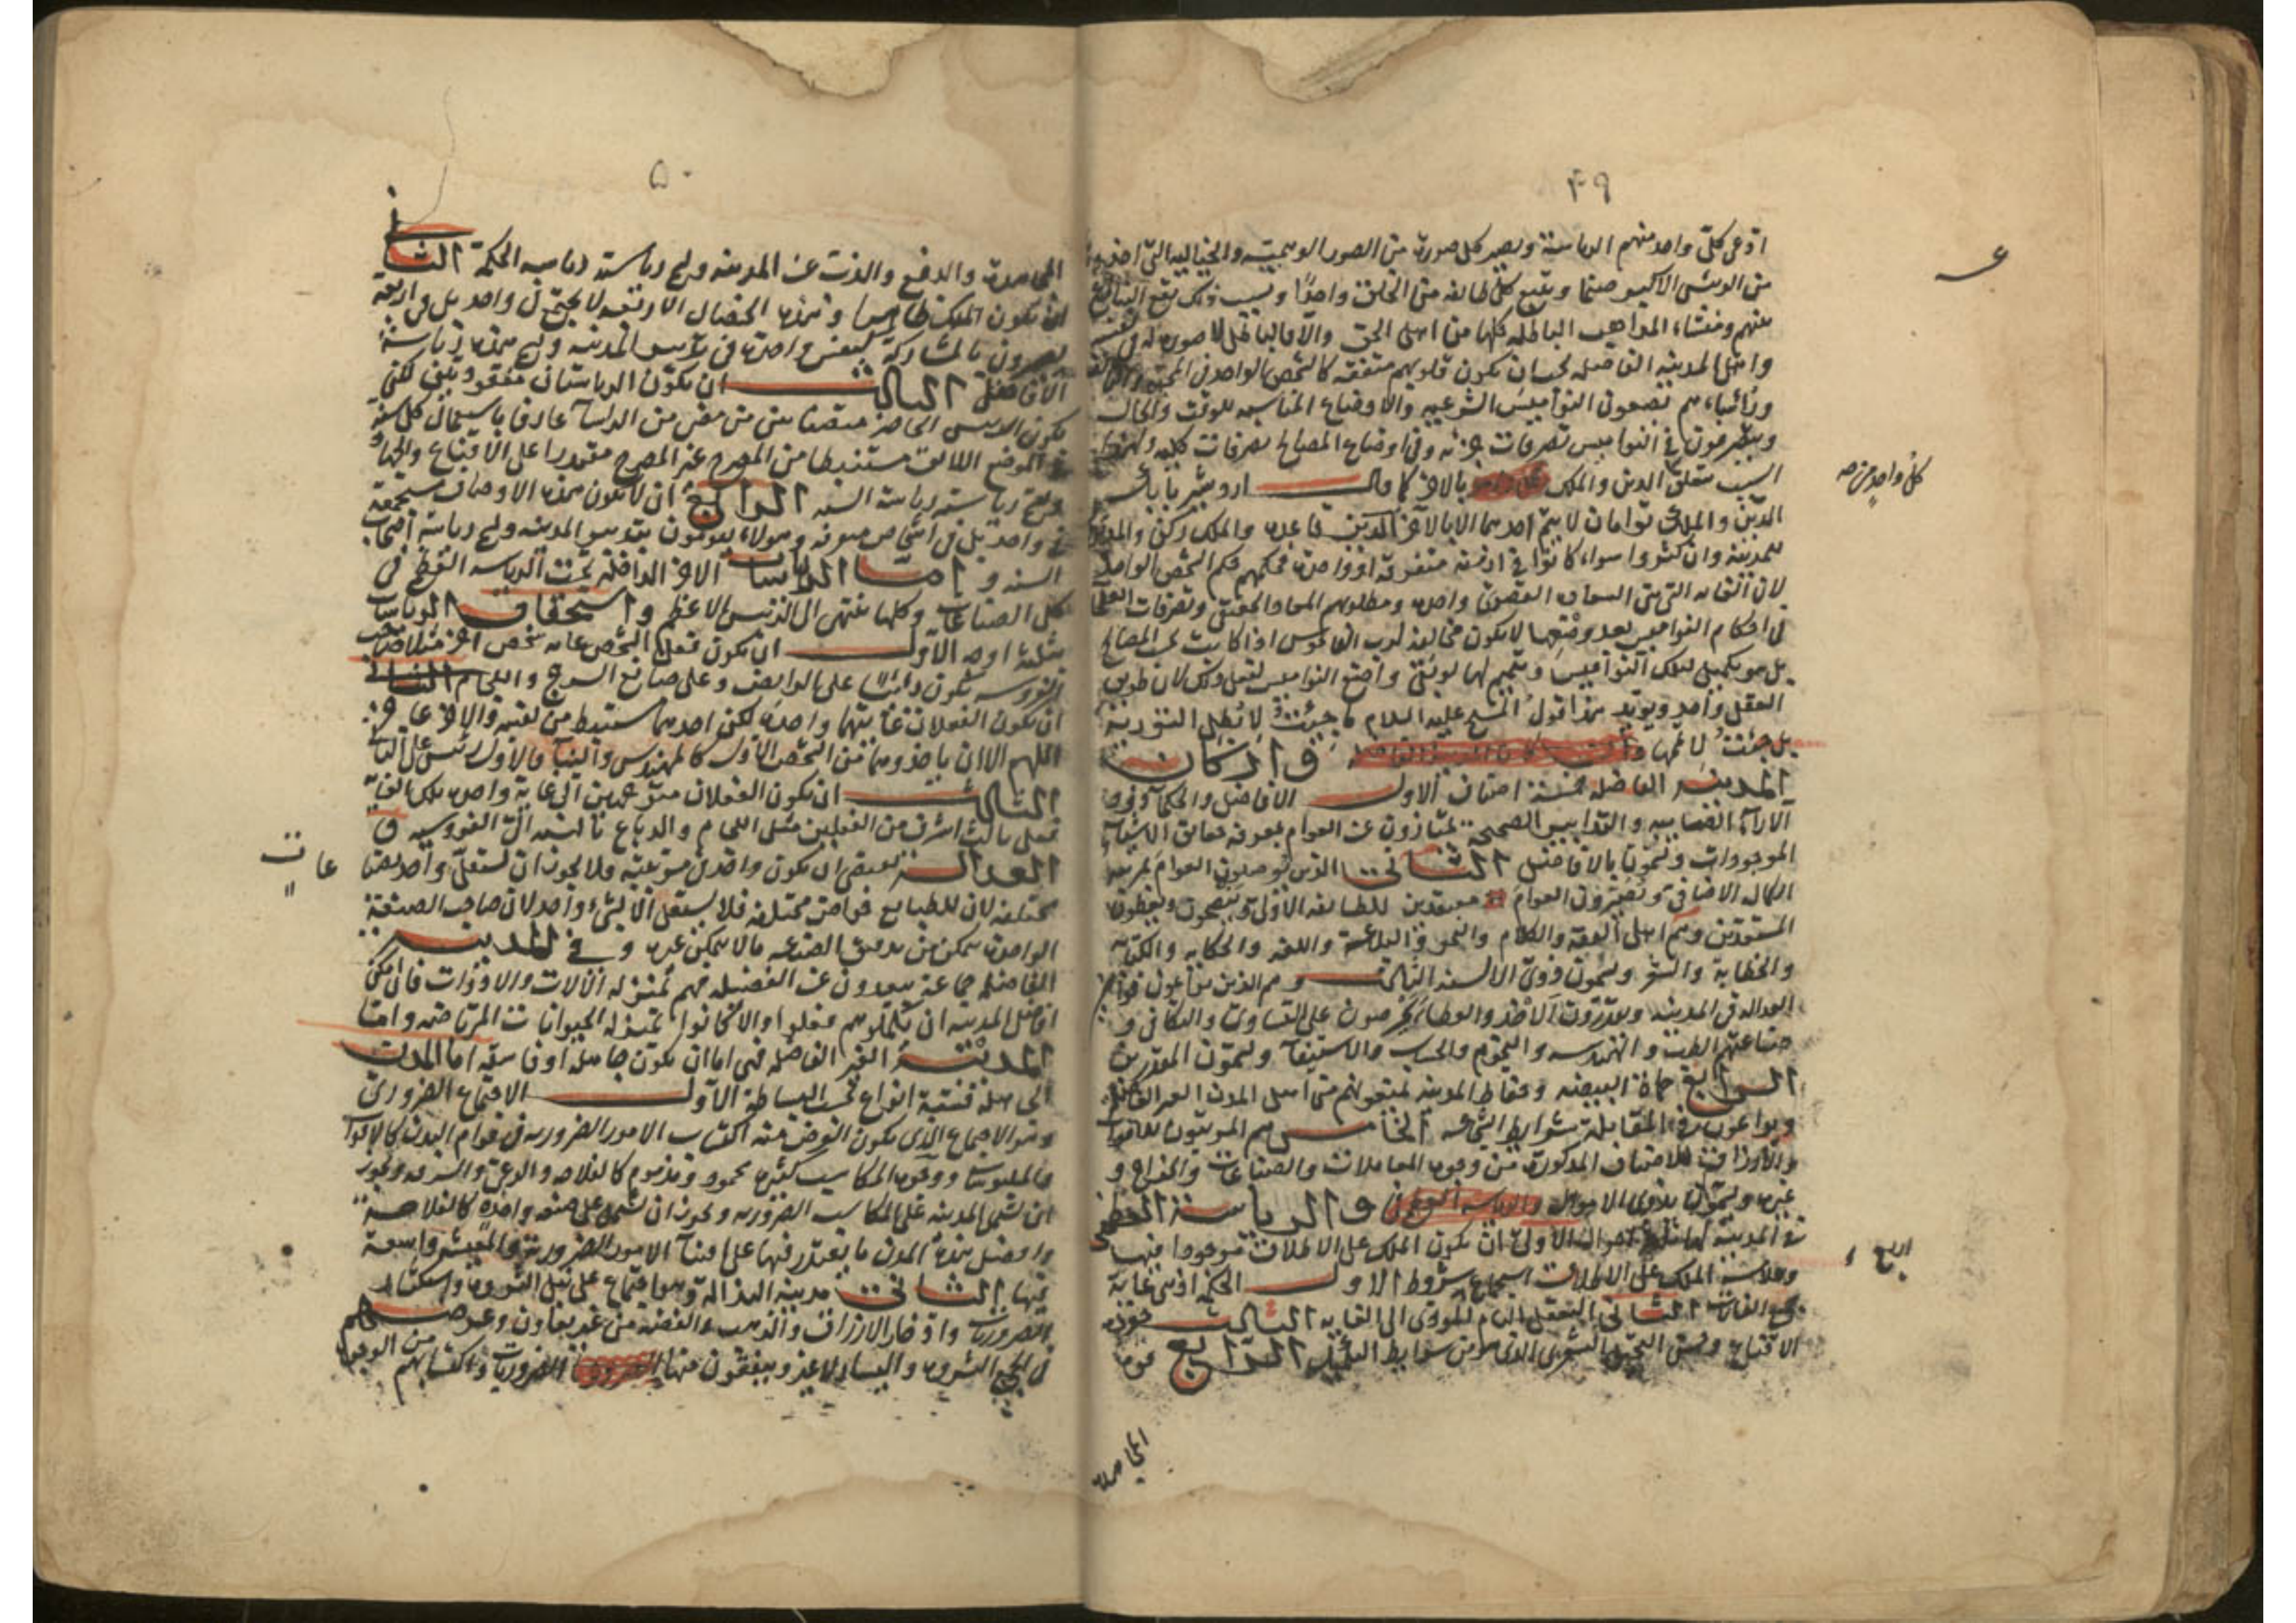 ٤٩
ادعى كل واحد منهم الرياسة ويصير كل صورة من الصور الوهمية والخيالية التي
من الرئيس الاكبر صنما ويتبع كل طائفة من الخلق واحدا وبسبب ذلك يقع التنازع
بينهم ومنشاء المذاهب الباطلة كلها من اهل الحق والا فالباطل لا صورة له في نفسه
واهل المدينة الفاضلة يجب ان يكون قلوبهم متفقة كالشخص الواحد في المحبة
ورؤساءهم يضعون النواميس الشرعية والاوضاع المناسبة للوقت والحال
ويتصرفون في النواميس تصرفات جزئية وفي اوضاع المصالح تصرفات كلية ولهذا
السبب تعلق الدين والملك بالاخر كما قال اردشير بابك
كل واحد من
الدين والملك توامان لا يتم احدهما الا بالاخر الدين قاعدة والملك ركن
المدينة وان كثروا سواء كانوا في ازمنة متفرقة او واحدة فحكمهم حكم الشخص الواحد
لان واحدة ومطلوبهم المعاد الحقيقي وتصرفات
في احكام النواميس بعد وضعها لا يكون مخالفة لرب الناموس اذا كانت المصالح
بل هو تكميل لتلك النواميس وتتميم لها لو بقي واضع النواميس لفعل ذلك لان طريق
العقل واحد ويؤيد هذا قول المسيح عليه السلام ما جيئت لابطل التورية
بل جئت لاتمها واركان
المدينة الفاضلة خمسة اصناف الاول الافاضل والحكماء
الاراء والتدابير الصحيحة يمتازون عن العوام بمعرفة حقائق الاشياء
الموجودات ويسمون بالافاضل الثاني الذين يوصلون العوام
الكمال الاضافي العوام معتقدين للطائفة الاولى
المستعدين وهم اهل الفقه والكلام والنحو والبلاغة واللغة والحكاية والكتابة
والخطابة والشعر ويسمون ذوي الالسنة الثالث وهم الذين يراعون
العدالة في المدينة ويقدرون الاخذ والعطاء يحرصون على التساوي والتكافي و
صناعتهم الطب والهندسة والنجوم والحساب والاستيفاء ويسمون المقدرين
الرابع حماة البيضة وحفاظ المدينة اهل المدن الغير الفاضلة
ويراعون في المقابلة شرايط الشجاعة الخامس هم المرتبون للاقوات
والارزاق للاصناف المذكورة من وجوه المعاملات والصناعات والخراج و
غيرها ويسمون بذوي الاموال والرياسة العظمى
في المدينة احوال الاولى ان يكون الملك على الاطلاق موجودا فيها
اربع
وعلامة الملك على الاطلاق استجماع شروط الاول الحكمة اذ هي غاية
جميع الغايات الثاني التعقل التام المؤدي الى الغاية الثالث جودة
الاقناع وحسن التخييل من شرايط التكميل الرابع قوة
المجاهدة
٥٠
المجاهدة والدفع والذب عن المدينة وهي رياسة رياسة الحكمة الثاني
ان يكون الملك ظاهرا وهذه الخصال الاربعة لا يجتمع في واحد بل في اربعة
يصيرون بالمشاركة كنفس واحدة في تدبير المدينة وهي هذه رياسة
الافاضل الثالث ان يكون الرياستان مفقودتين لكن
يكون الرئيس الحاضر متصفا بسنن من مضى من الرؤساء عارفا باستعمال كل سنة
في الموضع اللائق مستنبطا من المصرح غير المصرح مقتدرا على الاقناع والجهاد
وهي رياسة رياسة السنة الرابع ان لا يكون هذه الاوصاف مجتمعة
في واحد بل في اشخاص متفرقة وهؤلاء يقومون بتدبير المدينة وهي رياسة اصحاب
السنة واما الرياسات الاخر الداخلة تحت الرياسة العظمى في
كل الصناعات وكلها ينتهي الى الرئيس الاعظم واستحقاق الرياسات
بثلثة اوجه الاول ان يكون فعل الشخص غاية شخص اخر مثل صاحب
الفروسية يكون رئيسا على الرايض وعلى صانع السرج واللجام الثاني
ان يكون الفعلان غايتهما واحدة لكن احدهما مستنبط من نفسه والاخر عاجز
اللهم الا ان ياخذ من الشخص الاول كالمهندس والبناء فالاول رئيس على الثاني
الثالث ان يكون الفعلان متوجهين الى غاية واحدة
لكن احد الفعلين مثل اللجام والدباغ بالنسبة الى الفروسية و
العدالة يقتضي ان يكون واحد في مرتبته ولا يجوز ان يشتغل واحد بصناعات
عات
مختلفة لان للطبايع خواص مختلفة فلا يشتغل الا بشيء واحد لان صاحب الصنعة
الواحدة يتمكن من الصنعة ما لا يتمكن غيره وفي المدينة
الفاضلة جماعة يبعدون عن الفضيلة فهم بمنزلة الالات والادوات فان امكن
افاضل المدينة ان يكملوهم فعلوا والا كانوا بمنزلة الحيوانات المرتاضة واما
المدينة الغير الفاضلة فهي اما ان يكون جاهلة او فاسقة اما المدن
الجاهلة فستة انواع بحسب البساطة الاول الاجتماع الضروري
وهو الاجتماع الذي يكون الغرض منه اكتساب الامور الضرورية في قوام البدن كالاقوات
والملبوسات ووجوه المكاسب كثيرة محمود ومذموم كالفلاحة والرعي والسرقة ويجوز
ان يشتمل المدينة على المكاسب الضرورية ويجوز ان يشتمل على صنعة واحدة كالفلاحة
وافضل هذه المدن ما يقتدر فيها على اقتناء الامور الضرورية والمعيشة واسعة
فيها الثاني مدينة النذالة وهو اجتماع على نيل الثروة واستكثار
الضروريات وادخار الارزاق والذهب والفضة من غير تعاون وغرضهم
في الجمع الثروة واليسار لا غير وينفقون منها الضروريات واكتسابهم من الوجوه